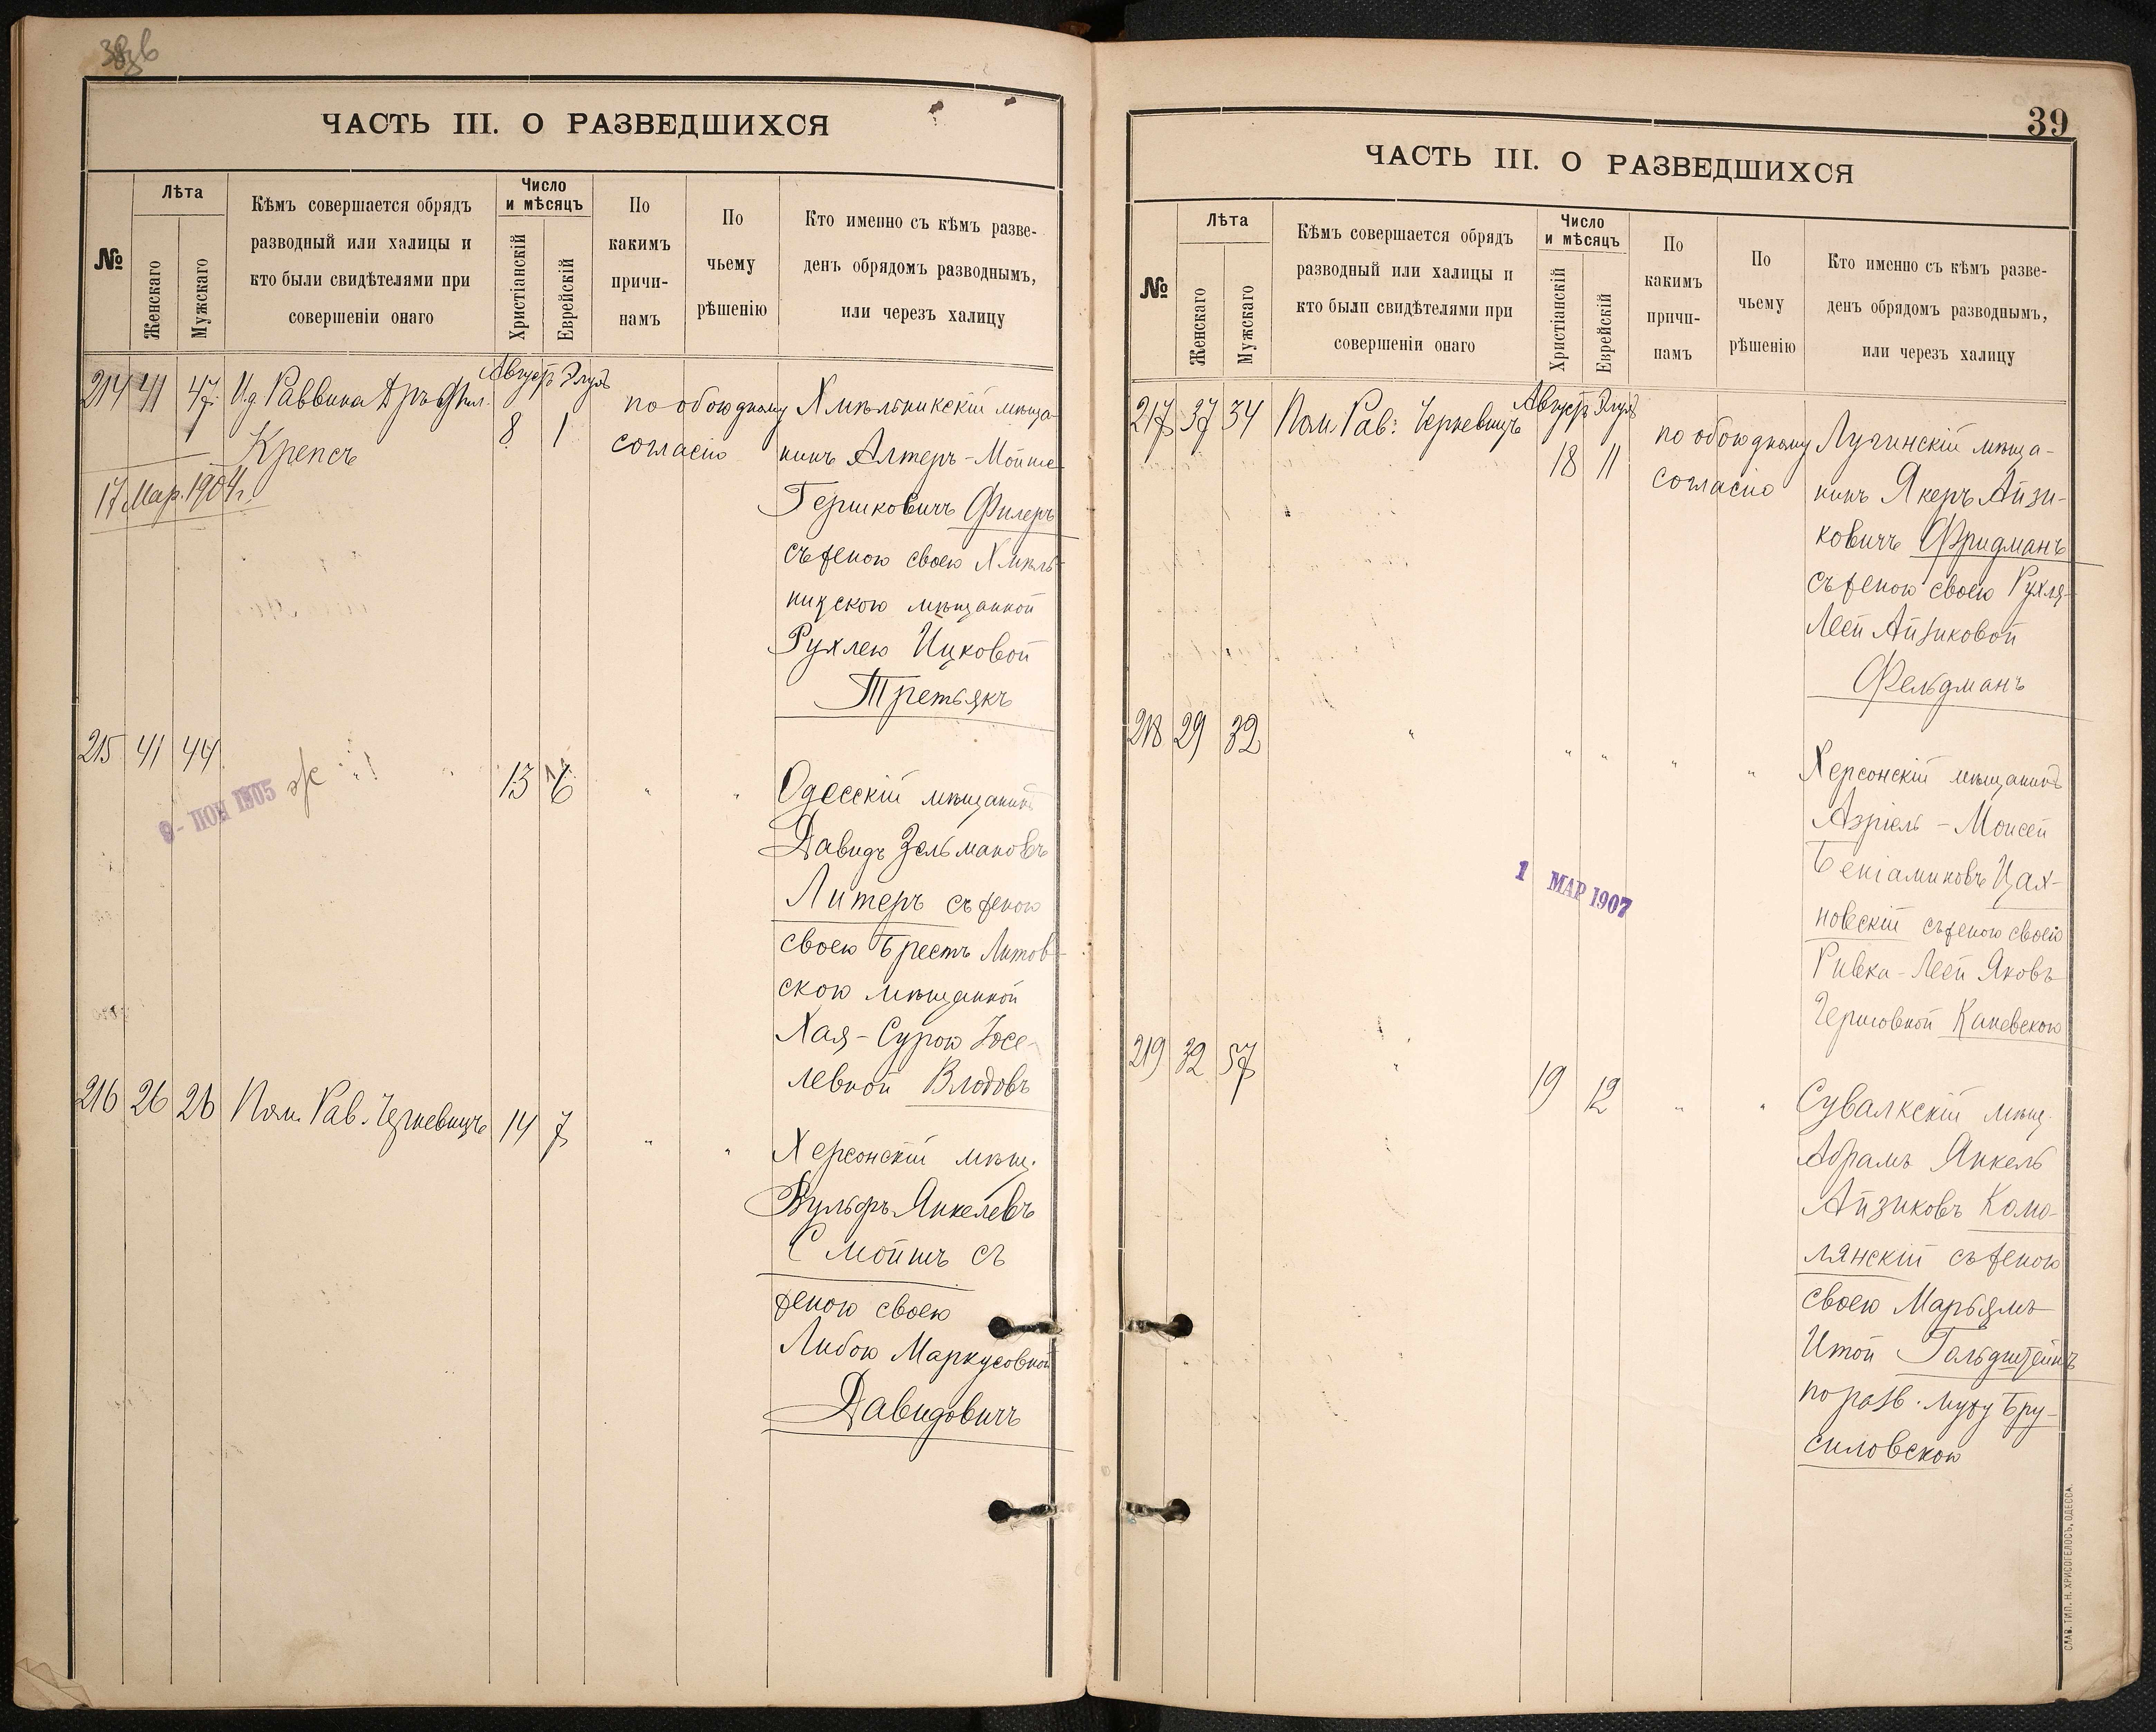 ЧАСТЬ III. О РАЗВЕДШИХСЯ
№
Лѣта
Женскаго
Мужскаго
Кѣмъ совершается обрядъ
разводный или халицы и
кто были свидѣтелями при
совершеніи онаго
Число
и мѣсяцъ
Христіанскій
Еврейскій
По
какимъ
причи-
намъ
По
чьему
рѣшенію
Кто именно съ кѣмъ разве-
денъ обрядомъ разводнымъ,
или черезъ халицу
214 41 47 И.д. Раввина Д-ръ Фил.
Крепсъ
17 Мар. 1904 г.
Августъ Элулъ
8 1
по обоюдному
согласію
Хмѣльникскій мѣща-
нинъ Алтеръ-Мойше
Гершковичъ Филеръ
съ женою своею Хмѣль-
ницскою мѣщанкой
Рухлею Ицковой
Третьякъ
215 41 44 " 13 6 " "
9 - ІЮН 1905
Одесскій мѣщанинъ
Давидъ Зельмановъ
Литеръ съ женою
своею Брестъ Литов-
скою мѣщанкой
Хая-Сурою Іосе-
левной Влодовъ
216 26 26 Пом. Рав. Черкевицъ 14 7 " "
Херсонскій мѣщ.
Вульфъ Янкелевъ
Смойшъ съ
женою своею
Либою Маркусовной
Давидовичъ
39
ЧАСТЬ III. О РАЗВЕДШИХСЯ
№
Лѣта
Женскаго
Мужскаго
Кѣмъ совершается обрядъ
разводный или халицы и
кто были свидѣтелями при
совершеніи онаго
Число
и мѣсяцъ
Христіанскій
Еврейскій
По
какимъ
причи-
намъ
По
чьему
рѣшенію
Кто именно съ кѣмъ разве-
денъ обрядомъ разводнымъ,
или черезъ халицу
217 37 34 Пом. Рав: Черкевицъ
Августъ Элулъ
18 11
по обоюдному
согласію
Лугинскій мѣща-
нинъ Якеръ Айзи-
ковичъ Фридманъ
съ женою своею Рухля-
Леей Айзиковой
Фельдманъ
218 29 32 " " " " "
1 МАР 1907
Херсонскій мѣщанинъ
Азріель-Моисей
Беніаминовъ Цах-
новскій съ женою своею
Ривка-Леей Яковъ
Гершовной Каневскою
219 32 57 " 19 12 " "
Сувалкскій мѣщ.
Абрамъ Янкель
Айзиковъ Камо-
лянскій съ женою
своею Марьямъ
Итой Гольдштейнъ
по разв. мужу Бру-
силовскою
СЛАВ. ТИП. Н. ХРИСОГЕЛОСЪ, ОДЕССА.